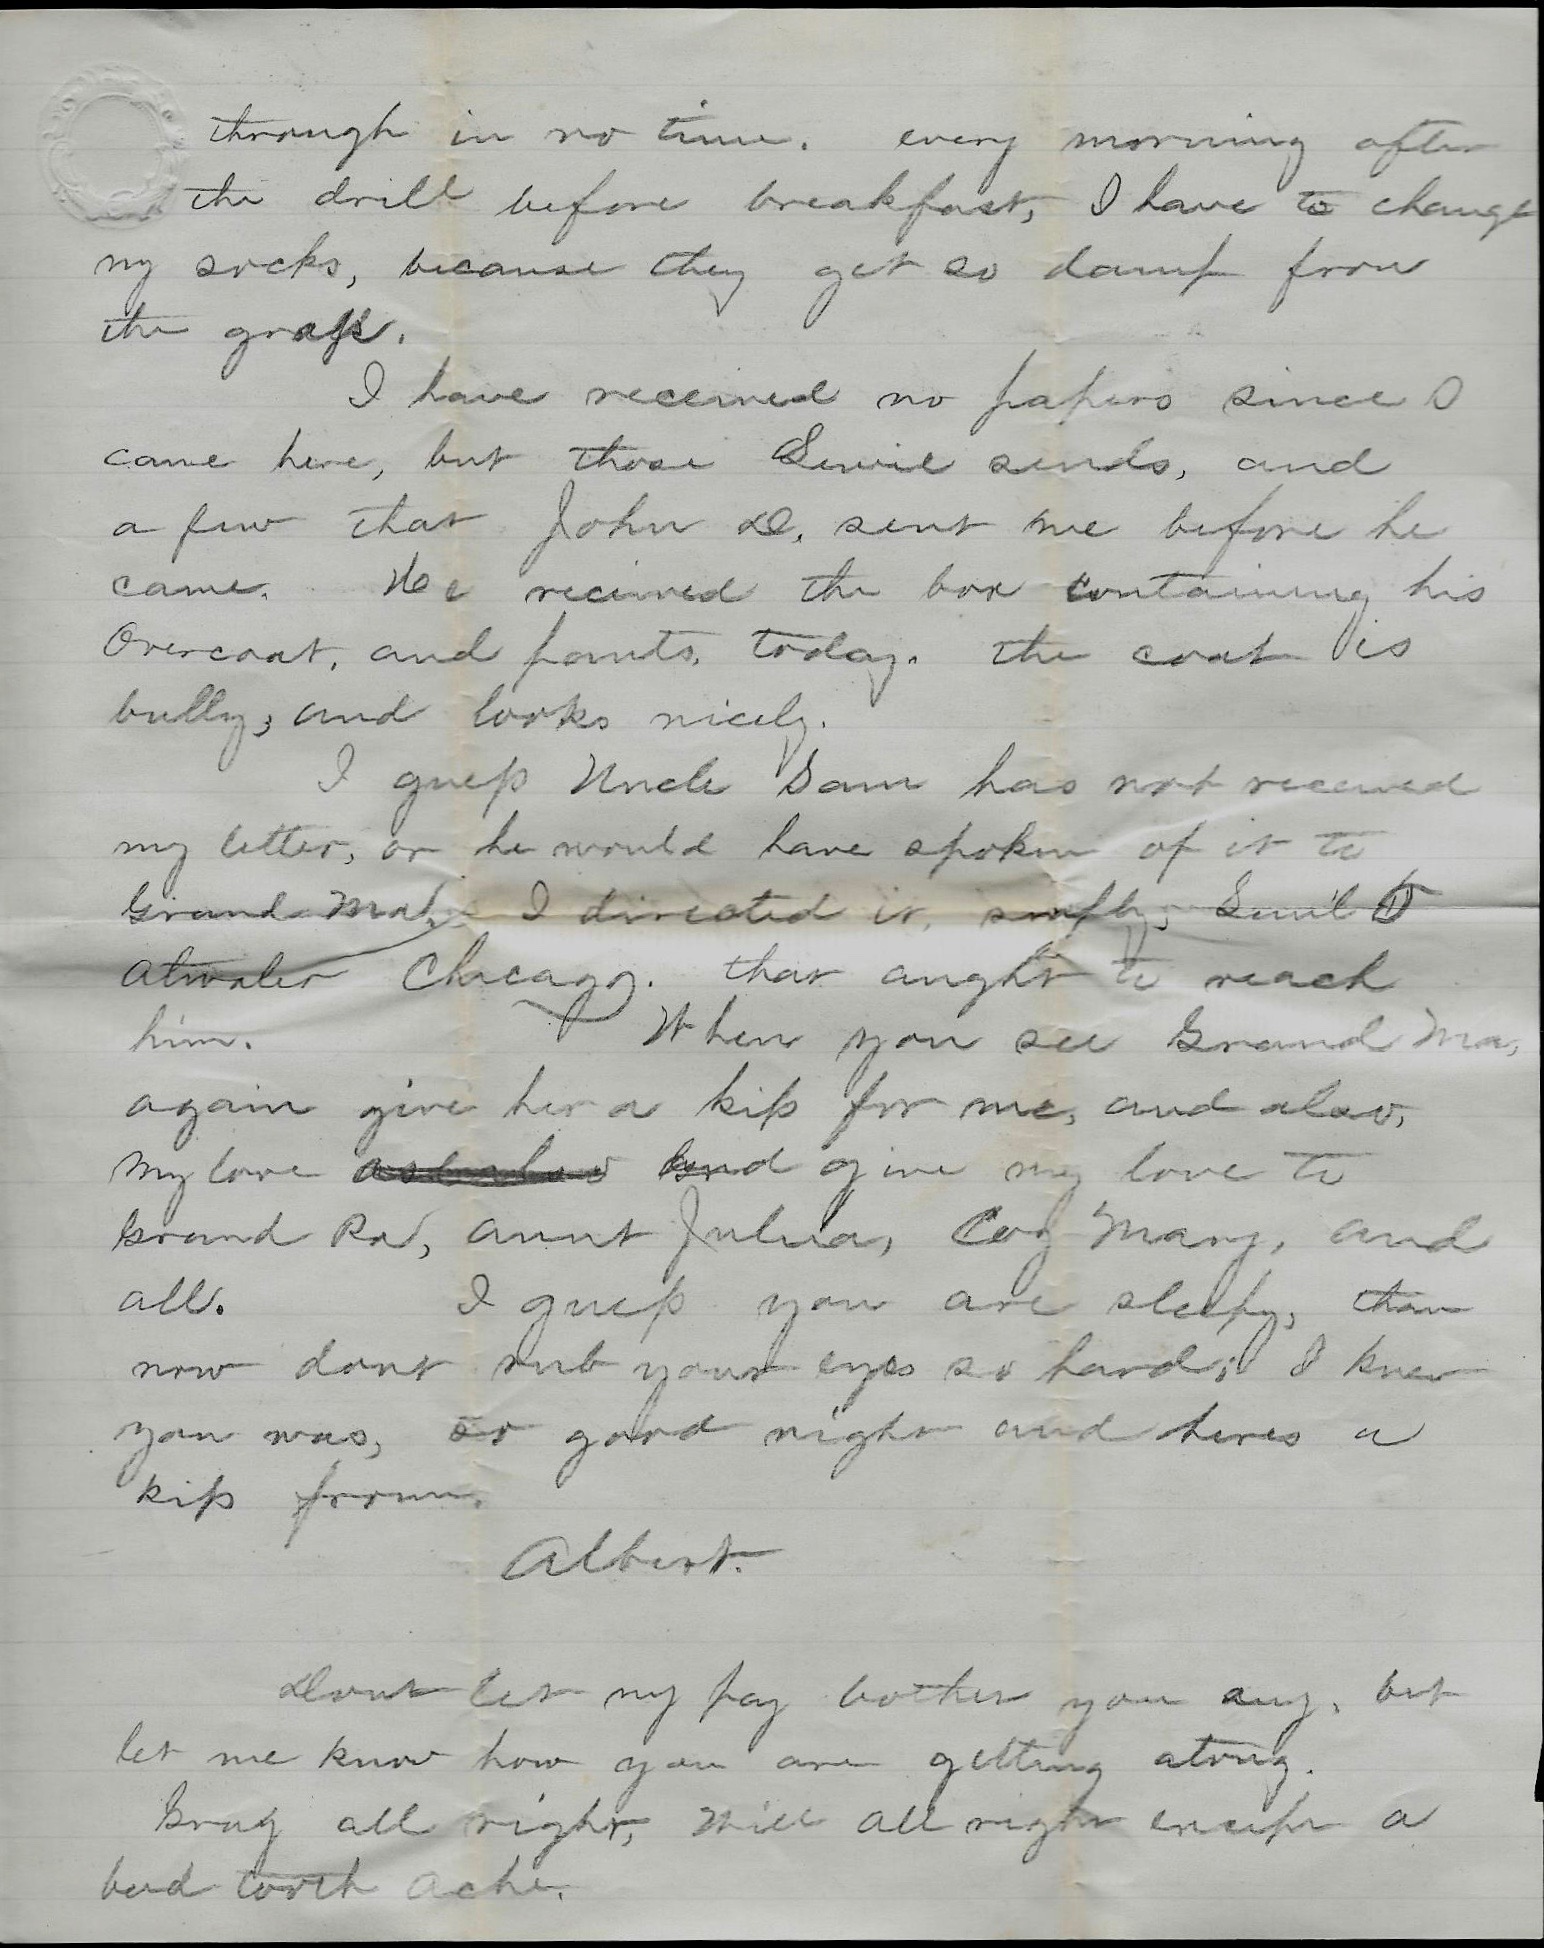 through in no time. every morning after
the drill before breakfast, I have to change
my socks, because they get so damp from
the grass.
I have received no papers since I
came here, but those Lewie sends, and
a few that John D. sent me before he
came. He received the box containing his
Overcoat, and pants, today. the coat is
bully, and looks nicely.
I guess Uncle Sam has not received
my letter, or he would have spoken of it to
Grand Ma. I directed it, simply, Sam'l D
Atwater Chicago. that aught to reach
him. When you see Grand Ma,
again give her a kiss for me, and also,
my love and give my love to
Grand Pa, aunt Julia, Coz Mary, and
all. I guess you are sleepy, than
now dont rub your eyes so hard, I knew
you was, so good night and heres a
kiss from.
Albert.
Dont let my pay bother you any, but
let me know how you are getting along.
Gray all right, Will all right except a
bad tooth ache.